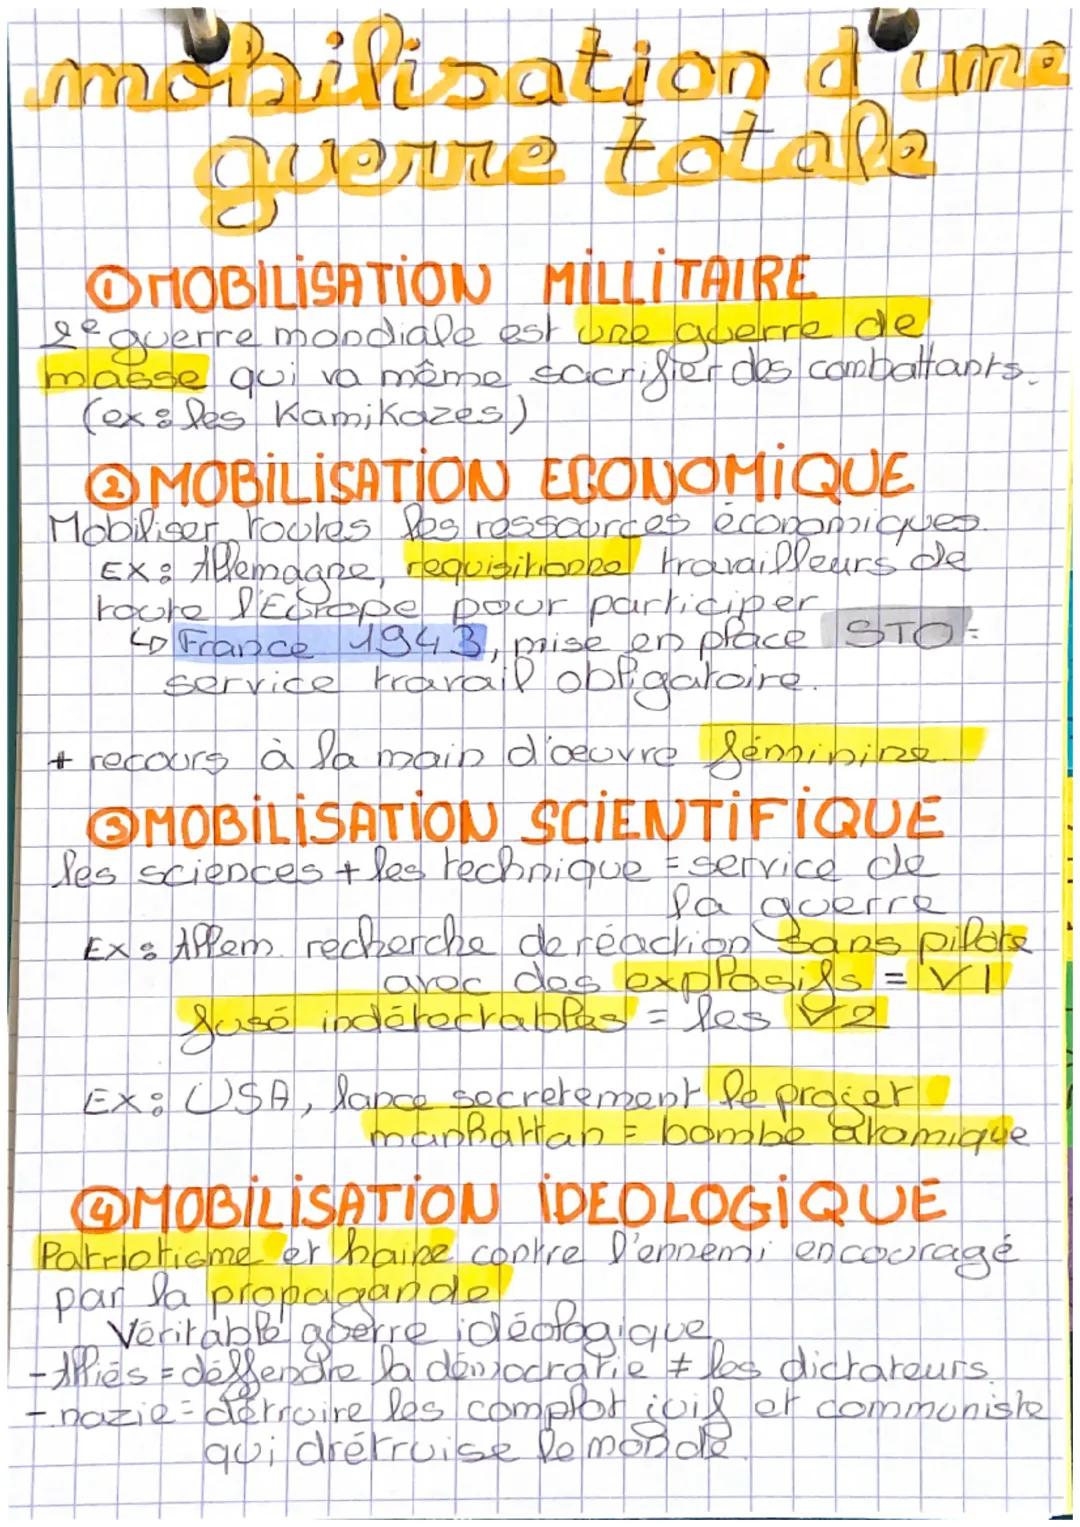 mobilisation d'une
guerre totale
① MOBILISATION MILLITAIRE
2e guerre mondiale est une guerre de
masse qui va même sacrifier des combattants.
(ex: les Kamikazes)
② MOBILISATION ECONOMIQUE
Mobiliser toutes les ressources économiques.
EX: Allemagne, requisitionne travailleurs de
toute l'Europe pour participer
↳ France 1943, mise en place STO =
service travail obligatoire.
+ recours à la main d'œuvre féminine.
③ MOBILISATION SCIENTIFIQUE
les sciences + les technique = service de
la guerre
Ex: Allem. recherche de réaction sans pilote
avec des explosifs = V1
fusé indétectables = les V2
Ex: USA, lance secretement le projet
manhattan = bombe atomique
④ MOBILISATION IDEOLOGIQUE
Patriotisme et haine contre l'ennemi encouragé
par la propagande
Véritable guerre idéologique
- Alliés = deffendre la démocratie ≠ les dictateurs.
- nazie = détruire les complot juif et communiste
qui drétruise le monde.